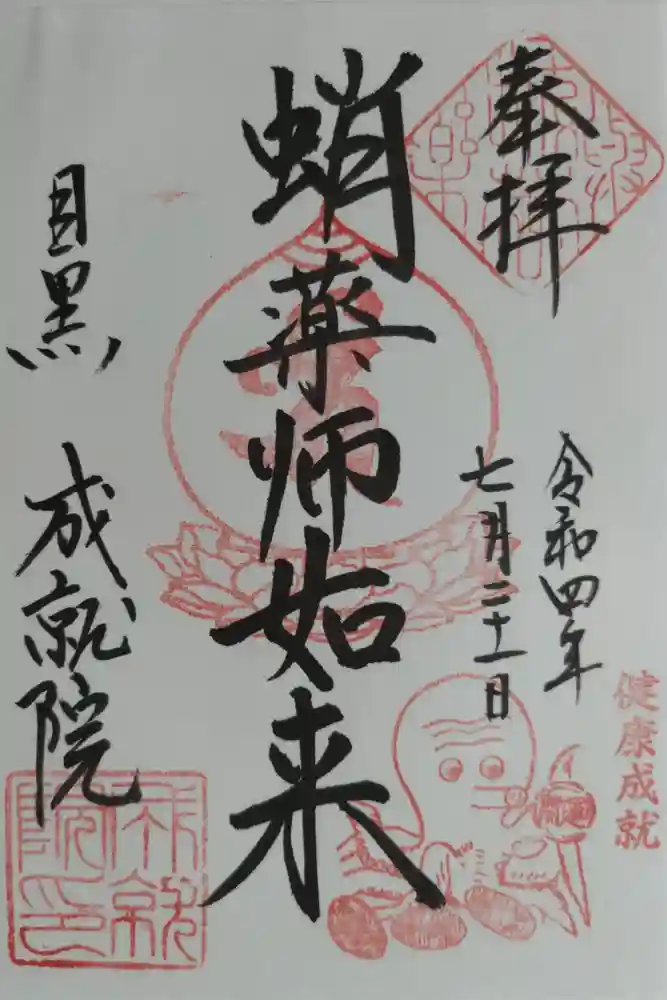 奉拝
令和四年
七月二十一日
蛸薬師如来
目黒 成就院
健康成就
成就院印